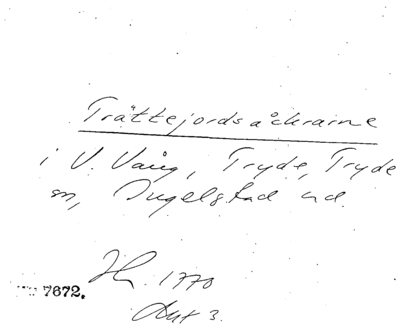 Trättejordsåckrarne
i V. Vång, Tryde, Tryde
sn, Ingelstad hd.
Ht. 1770
7672.
Akt 3.